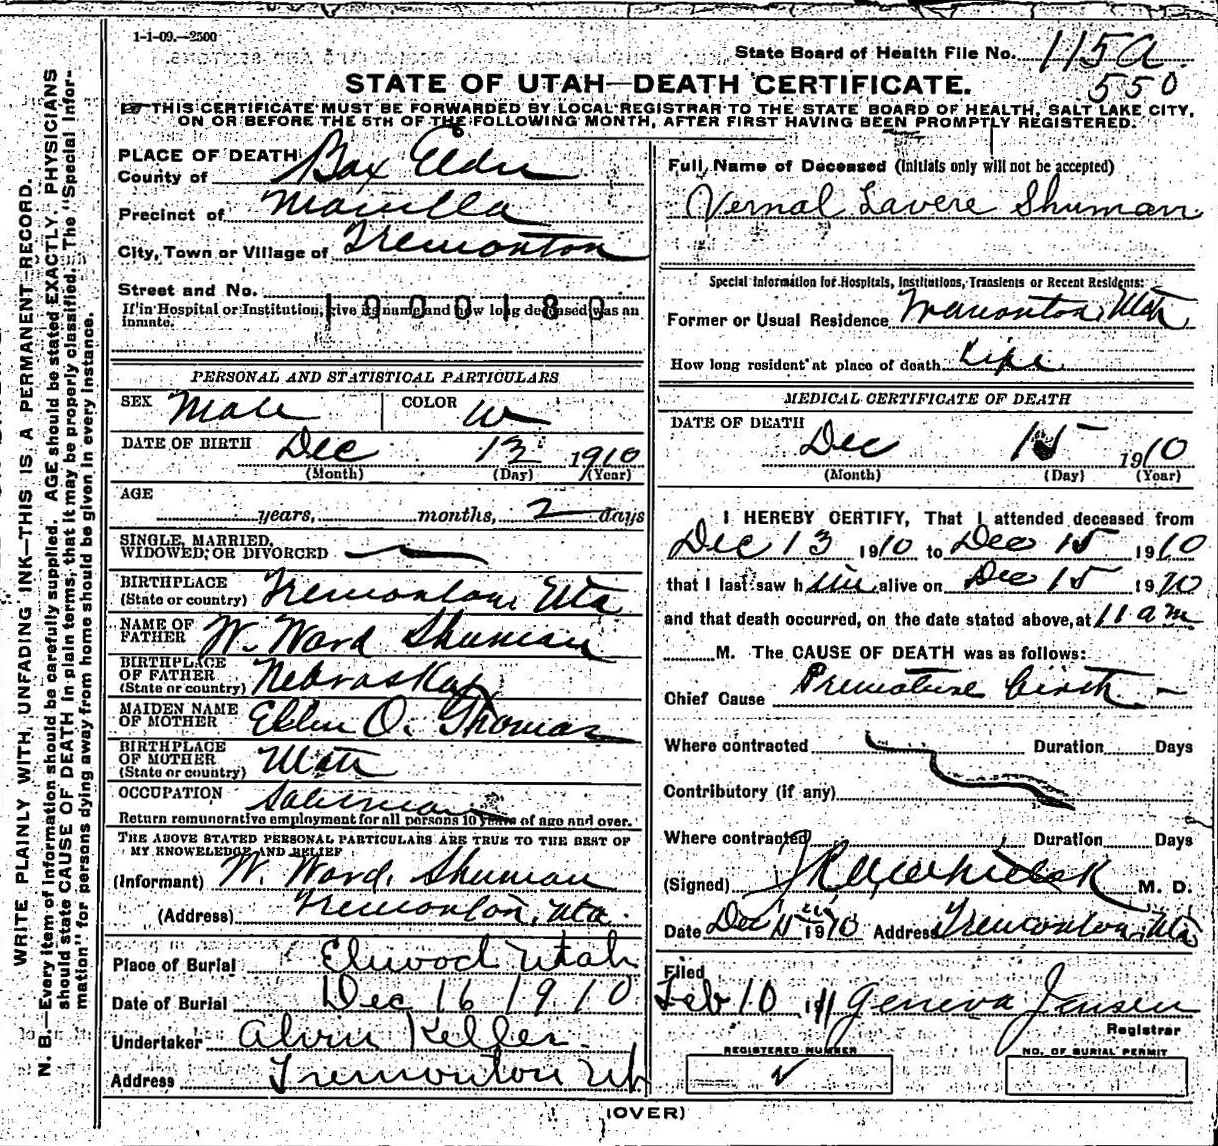 1-1-09.—2500
State Board of Health File No. 115a
550
STATE OF UTAH—DEATH CERTIFICATE.
THIS CERTIFICATE MUST BE FORWARDED BY LOCAL REGISTRAR TO THE STATE BOARD OF HEALTH, SALT LAKE CITY,
ON OR BEFORE THE 5TH OF THE FOLLOWING MONTH, AFTER FIRST HAVING BEEN PROMPTLY REGISTERED.
WRITE PLAINLY WITH UNFADING INK—THIS IS A PERMANENT RECORD.
N. B.—Every item of information should be carefully supplied. AGE should be stated EXACTLY. PHYSICIANS
should state CAUSE OF DEATH in plain terms, that it may be properly classified. The "Special Infor-
mation" for persons dying away from home should be given in every instance.
PLACE OF DEATH
County of Box Elder
Precinct of
City, Town or Village of Tremonton
Street and No.
1000180
If in Hospital or Institution, give its name and how long deceased was an
inmate.
PERSONAL AND STATISTICAL PARTICULARS
SEX Male COLOR W
DATE OF BIRTH Dec 13 1910
(Month) (Day) (Year)
AGE
years, months, 2 days
SINGLE, MARRIED,
WIDOWED, OR DIVORCED
BIRTHPLACE
(State or country) Tremonton Uta
NAME OF
FATHER W. Ward Shuman
BIRTHPLACE
OF FATHER
(State or country) Nebraska
MAIDEN NAME
OF MOTHER Ellen O. Thomas
BIRTHPLACE
OF MOTHER
(State or country) Utah
OCCUPATION Salesman
Return remunerative employment for all persons 10 years of age and over.
THE ABOVE STATED PERSONAL PARTICULARS ARE TRUE TO THE BEST OF
MY KNOWELEDGE AND BELIEF
(Informant) W. Ward Shuman
(Address) Tremonton, Uta.
Place of Burial Elwood Utah
Date of Burial Dec 16 1910
Undertaker Alvin Keller
Address Tremonton Ut
Full Name of Deceased (Initials only will not be accepted)
Vernal Lavere Shuman
Special Information for Hospitals, Institutions, Transients or Recent Residents:
Former or Usual Residence Tremonton, Utah
How long resident at place of death Life
MEDICAL CERTIFICATE OF DEATH
DATE OF DEATH Dec 15 1910
(Month) (Day) (Year)
I HEREBY CERTIFY, That I attended deceased from
Dec 13 1910 to Dec 15 1910
that I last saw him alive on Dec 15 1910
and that death occurred, on the date stated above, at 11 am
M. The CAUSE OF DEATH was as follows:
Chief Cause Premature birth
Where contracted Duration Days
Contributory (if any)
Where contracted Duration Days
(Signed) M. D.
Date Dec 1910 Address Tremonton, Uta
Filed
Feb 10 1911 Geneva Jensen
Registrar
REGISTERED NUMBER
NO. OF BURIAL PERMIT
(OVER)